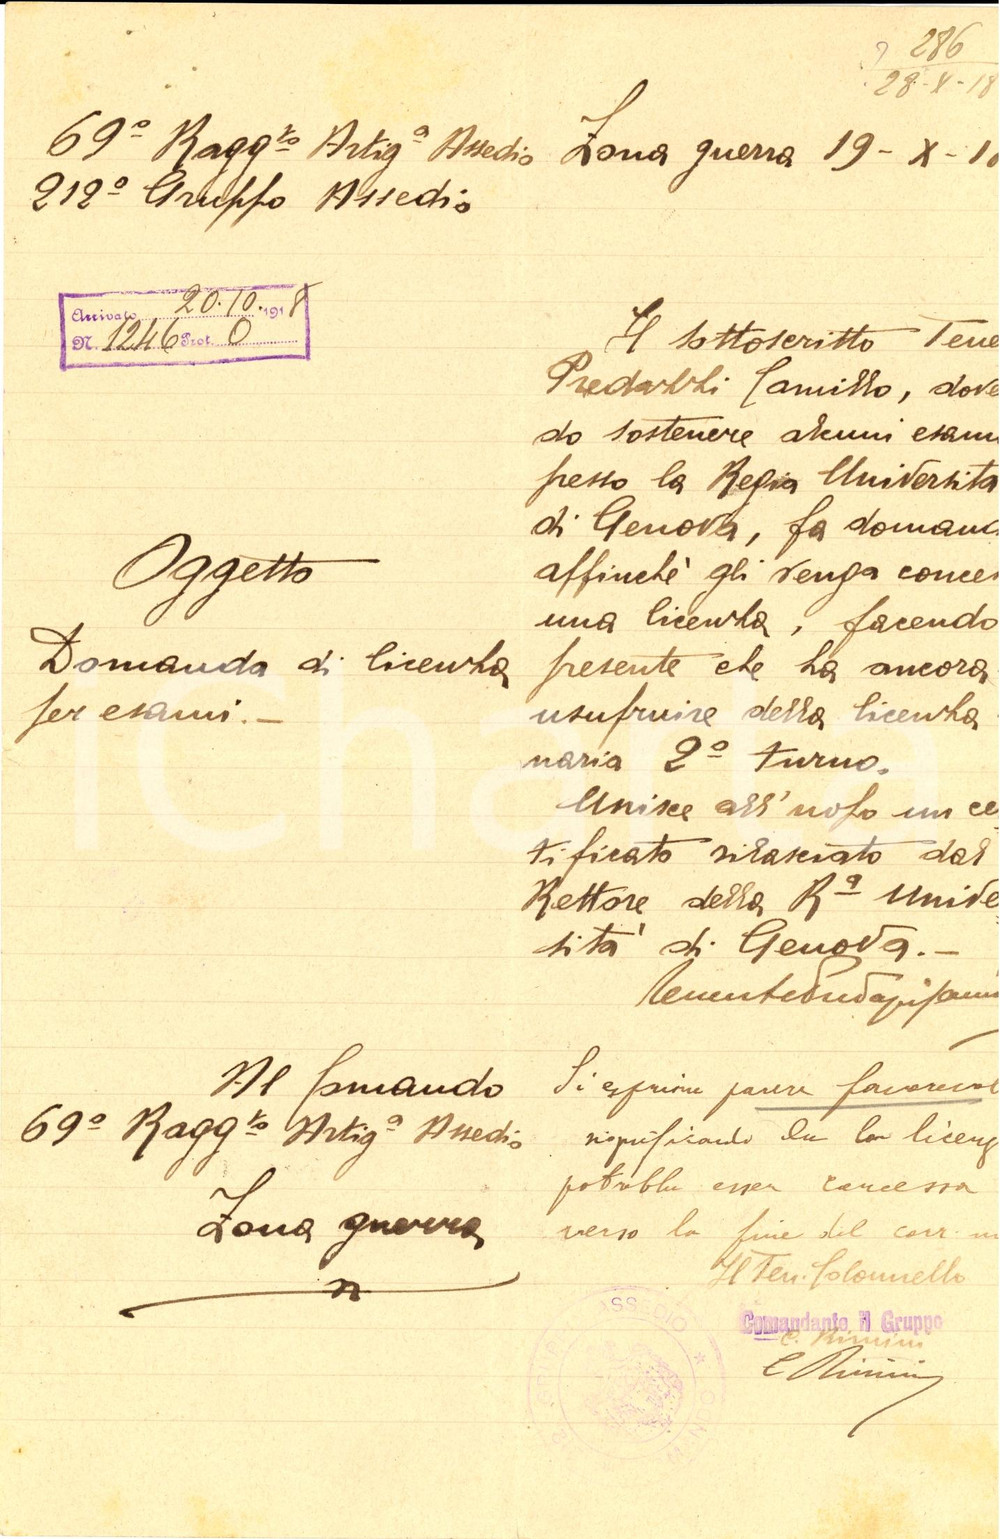 286
28-X-18
69º Raggto Artigª Assedio Zona guerra 19-X-1
212º Gruppo Assedio
Arrivato 20.10.1918
N. 1246 Prot. O
Il sottoscritto Tene
Camillo, dove
do sostenere alcuni esam
presso la Regia Universita
di Genova, fa doman
affinchè gli venga conces
una licenza, facendo
presente che ha ancora
usufruire della licenza
naria 2º turno.
Unisce all'uopo un ce
tificato rilasciato dal
Rettore della Rª Unive
sità di Genova.-
Oggetto
Domanda di licenza
per esami.-
Tenente
Al Comando
69º Raggto Artigª Assedio
Zona guerra
Si esprime parere favorevol
significando che la licenz
potrebbe esser concessa
verso la fine del corr. m
Il Ten. Colonnello
Comandante il Gruppo
C. Rimini
C Rimini
ASSEDIO